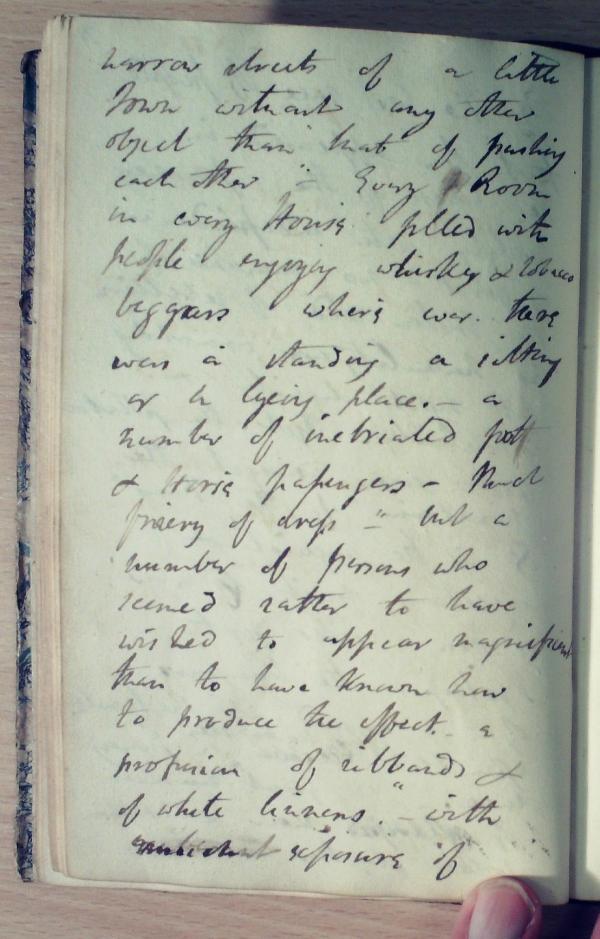 narrow streets of a little
Town without any other
object than that of pushing
each other " - Every Room
in every House filled with
people enjoying whiskey & tobacco
beggars where ever there
was a standing a sitting
or a lyeing place. - a
number of inebriated foot
& Horse passengers - Much
finery of dress " - but a
number of persons who
seemed rather to have
wished to appear magnificent
than to have known how
to produce the effect. - a
profusion of ribbands &
of white linnens. " - with
exposure of